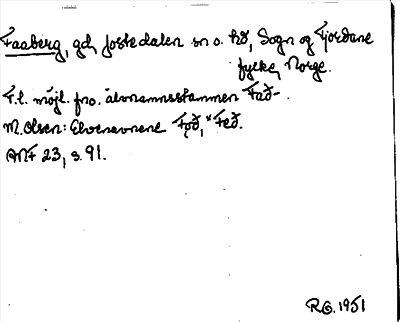 Faaberg, gd, Jostedalen sn o. hd, Sogn og Fjordane
fylke, Norge.
F.l. möjl. fro. älvnamnsstammen Fað-.
M. Olsen: Elvenavnene Fǫð, *Feð.
ANF 23, s. 91.
R.G. 1951